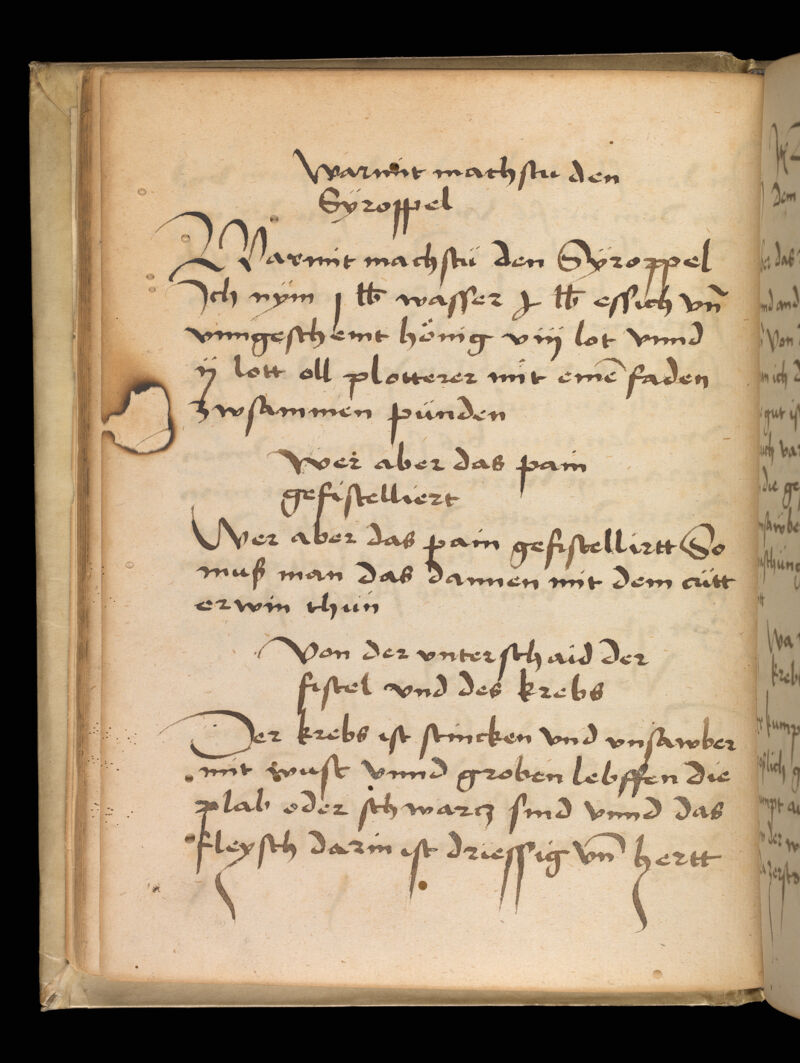 Warmit machstu den
Syroppel
Warmit machstu den Syroppel
Ich nym j lb wasser j lb essich vn̄
vnngeschemt hönig viij lot vnnd
ij lott oll plotterer mit eine͂ faden
zwsammen pünden
Wer aber das pain
gefistelliert
Wer aber das pain gefistellirtt So
muß man das dannen mit dem cütt
erwin thun
Von der vnterschaid der
fistel vnd des krebs
Der krebs ist stincken vnd vnsawber
mit wust vnnd groben lebffen die
plab oder schwarcz sind vnnd das
fleysch darin ist driessig vn̄ hertt
Dem
das
Von
gut
die ge
krebs